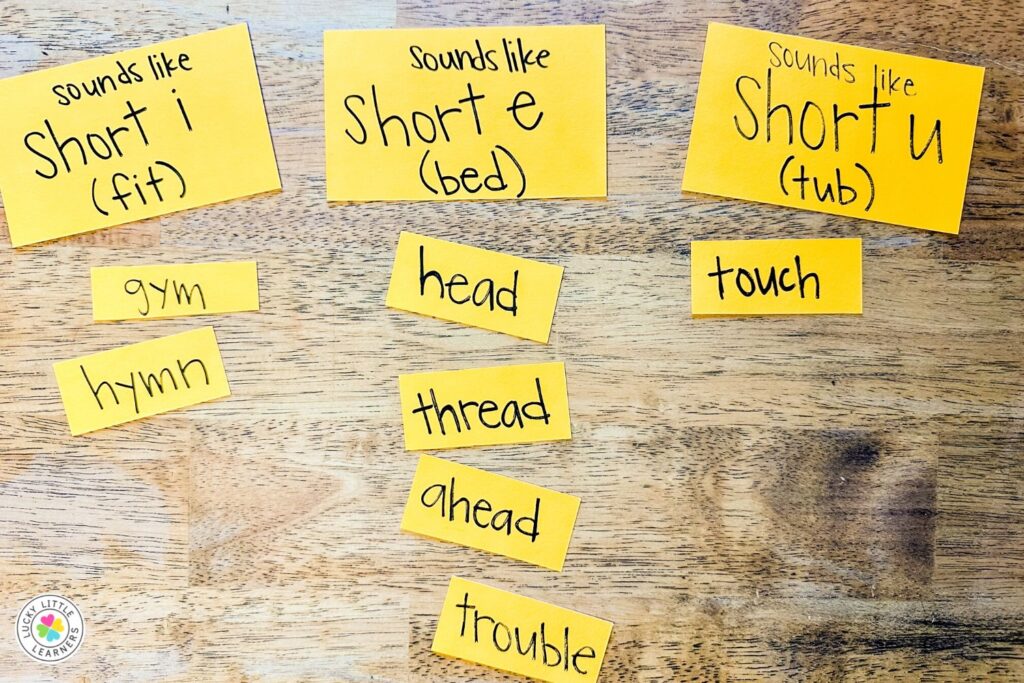 sounds like
Short i
(fit)
gym
hymn
sounds like
Short e
(bed)
head
thread
ahead
trouble
sounds like
Short u
(tub)
touch
LUCKY LITTLE
LEARNERS